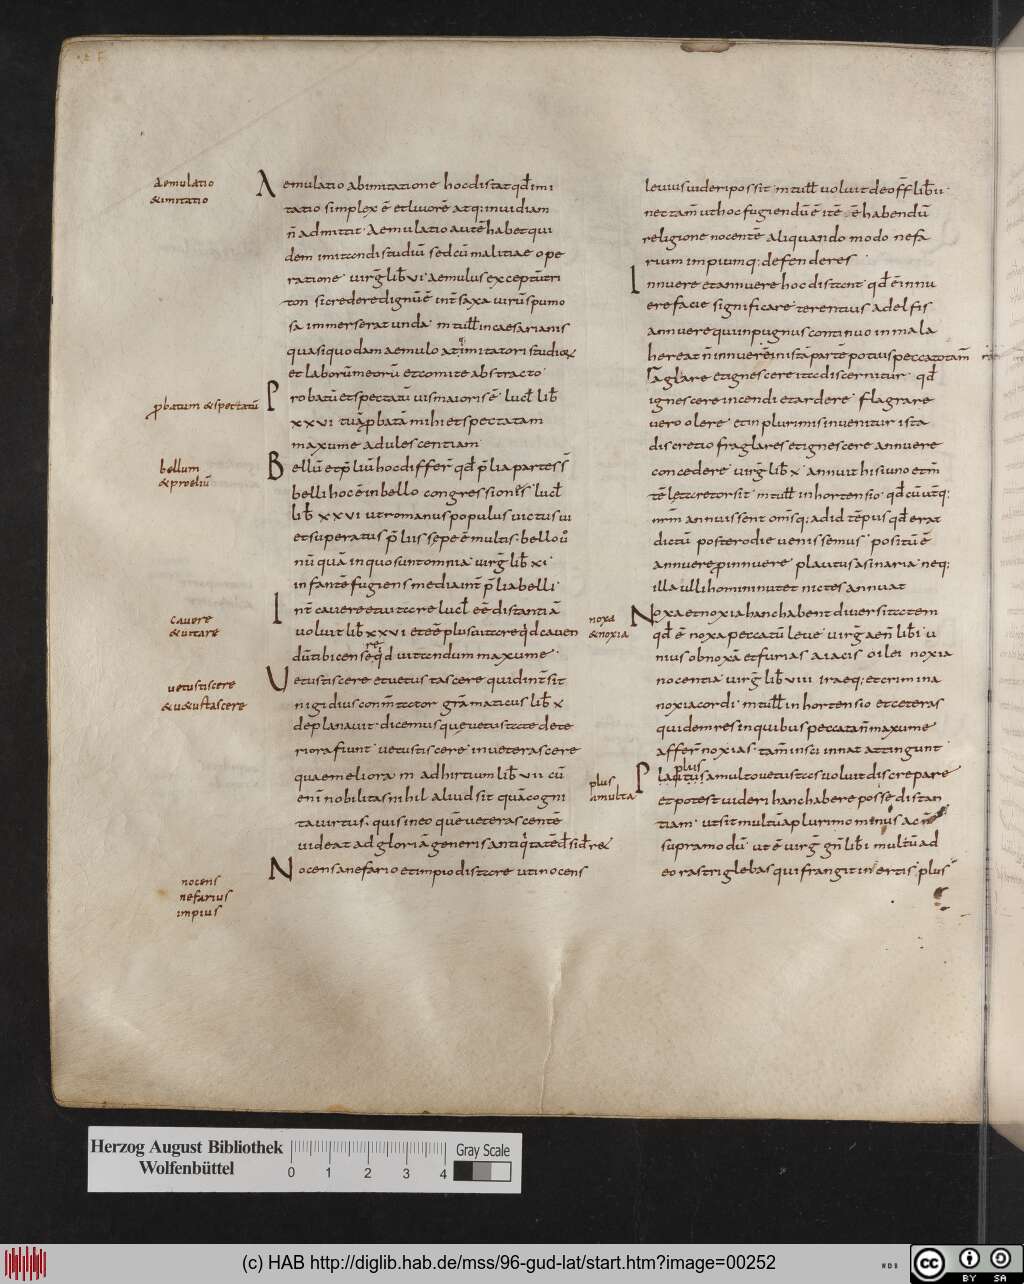 Aemulatio
&imitatio
Aemulatio abimitatione hocdistat qđ imi
tatio simplex ē et liuorē atq; inuidiam
n̄ admittit Aemulatio autē habet qui
dem imitandi studiū sed cū malitiae ope
ratione virg̅ lib̅ vi aemulus exceptū tri
ton si credere dignū ē int̅ saxa uirū spumo
sa immerserat unda m tull̅ incaesarianis
quasi quodam aemulo atq; imitatori studior̅
et laborū meorū et comite abstracto
ꝓbatum &spectatū
Probatū et spectatū uis maioris ē lucł lib̅
xxvi tuā ꝓbatā mihi et spectatam
maxume adulescentiam
bellum
&proeliū
Bellū et p̄liū hoc differ̅ qđ p̄lia partes s̄
belli hoc ē in bello congressiones lucł
lib̅ xxvi ut romanus populus uictus ui
et superatus p̄liis sepe ē multis bello uo̅
nū quā in quo sunt omnia uirg̅ lib̅ xi
infantē fugiens media int̅ p̄lia belli
cauere
&uitare
Int̅ cauere et uitare lucł eē distantiā
uoluit lib̅ xxvi et eē plus uitare qđ cauen
dū tibi censere qđ uitandum maxume
uetustiscere
&u&ustascere
Vetustiscere et uetustascere quid int̅sit
nigidius commtator grāmaticus lib̅ x
deplanauit dicemus que uetustate dete
riora fiunt uetustiscere inueterascere
quae meliora m adhirtium lib̅ vii cū
enī nobilitas nihil aliud sit quā cogni
ta uirtus quis in eo quē ueterascentē
uideat ad gloriā generis antiq̅tatē
nocens
nefarius
impius
Nocens anefario et impio distare uti nocens
leuius uideri possit m tull̅ uoluit de off̅ lib̅ ii
nec tam̄ ut hoc fugiendū ē itē ē habendū
religione nocentē aliquando modo nefa
rium impiumq; defenderes
Innuere et annuere hoc distant qđ ē innu
ere facie significare terentius adelfis
annuere qui inpugnus continuo in mala
hereat n̄ innuere in istā partē potius peccato tam̄
Flaglare et ignescere ita discernitur qđ
ignescere incendi et ardere flagrare
uero olere et in plurimis inuenitur ista
discretio fraglares et ignescere annuere
concedere uirg̅ lib̅ x annuit his iuno et m̄
tē lętata retorsit m tull̅ in hortensio qđ cū utq;
nrm̄ annuissent om̄sq; ad id tēpus qđ erat
dictū postero die uenissemus positū ē
annuere pro innuere plautus asinaria neq;
illa ulli homini nutet nictet annuat
noxa
&noxia
Noxa et noxia hanc habent diuersitatem
qđ ē noxa peccatū leue uirg̅ aen̅ lib̅ i u
nius ob noxā et furias aiacis oilei noxia
nocentia uirg̅ lib̅ viii iraeq; et crimina
noxia cordi m tull̅ in hortensio et ceteras
quidem res in quibus peccata n̄ maxume
affer̅ noxias tam̄ insci innat attingunt
plus
amulta
Plautus a multo uetustas uoluit discrepare
plus
et potest uideri hanc habere posse distan
tiam ut sit multū a plurimo minus ac n̄
supra modū ut ē uirg̅ gn̅ lib̅ i multū ad
eo rastri glebas qui frangit inertis plus
Herzog August Bibliothek
Wolfenbüttel
0 1 2 3 4
Gray Scale
(c) HAB http://diglib.hab.de/mss/96-gud-lat/start.htm?image=00252
WDB
cc BY SA